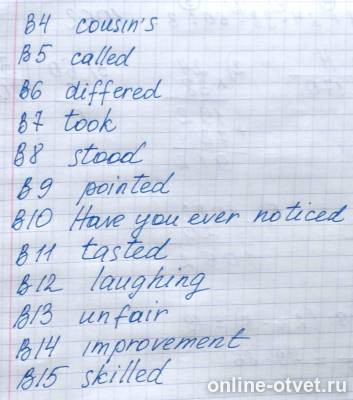 B4 cousin's
B5 called
B6 differed
B7 took
B8 stood
B9 pointed
B10 Have you ever noticed
B11 tasted
B12 laughing
B13 unfair
B14 improvement
B15 skilled
online-otvet.ru